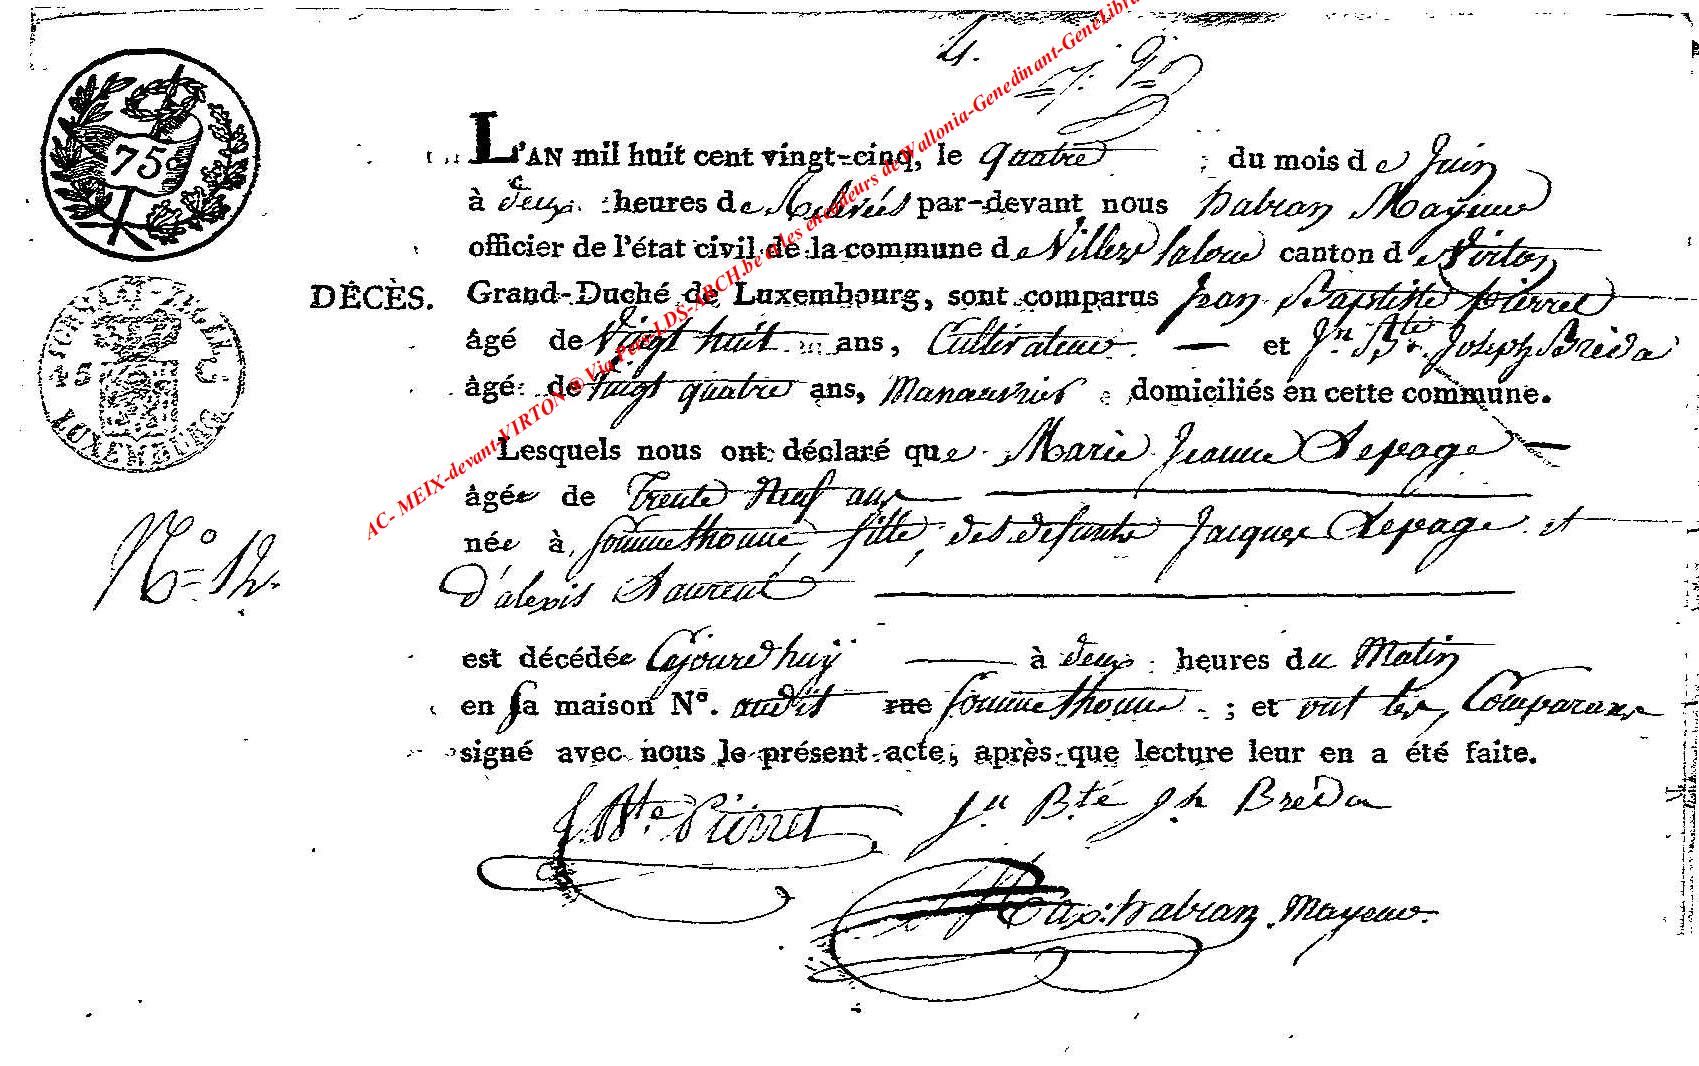 4.
75
L'AN mil huit cent vingt-cinq, le quatre du mois de Juin
à deux heures de Relevés par-devant nous habran Mayeur
officier de l'état civil de la commune de Villers laloue canton de Virton
DÉCÈS. Grand-Duché de Luxembourg, sont comparus Jean Baptiste pierret
âgé de Vingt huit ans, Cultivateur — et Jn Bte Joseph Breda
âgé de vingt quatre ans, Manauvrier domiciliés en cette commune.
Lesquels nous ont déclaré que Marie Jeanne Lepage —
âgée de Trente Neuf ans
née à Sommethonne, fille, des defunts Jacques Lepage et
N° 12.
d'alexis Laurent
est décédée Cejourdhuÿ — à deux heures du Matin
en sa maison N°. audit rue Sommethonne ; et ont les Comparans
signé avec nous le présent acte, après que lecture leur en a été faite.
J Bte Pierret
Jn Bte Jh Breda
Max: habran Mayeur.
AC- MEIX-devant-VIRTON @ Via Pcts-LDS-ARCH.be et les encodeurs de Wallonia-Genedinant-GeneLibra